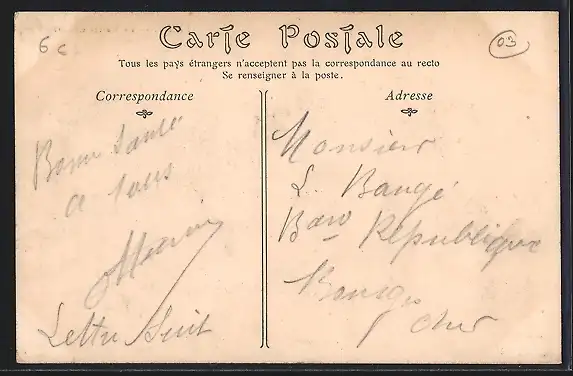 6 c
03
Carte Postale
Tous les pays étrangers n'acceptent pas la correspondance au recto
Se renseigner à la poste.
Correspondance
Bonne Santé
a tous
Lettre Suit
Adresse
Monsieur
L. Baugé
République
Cher